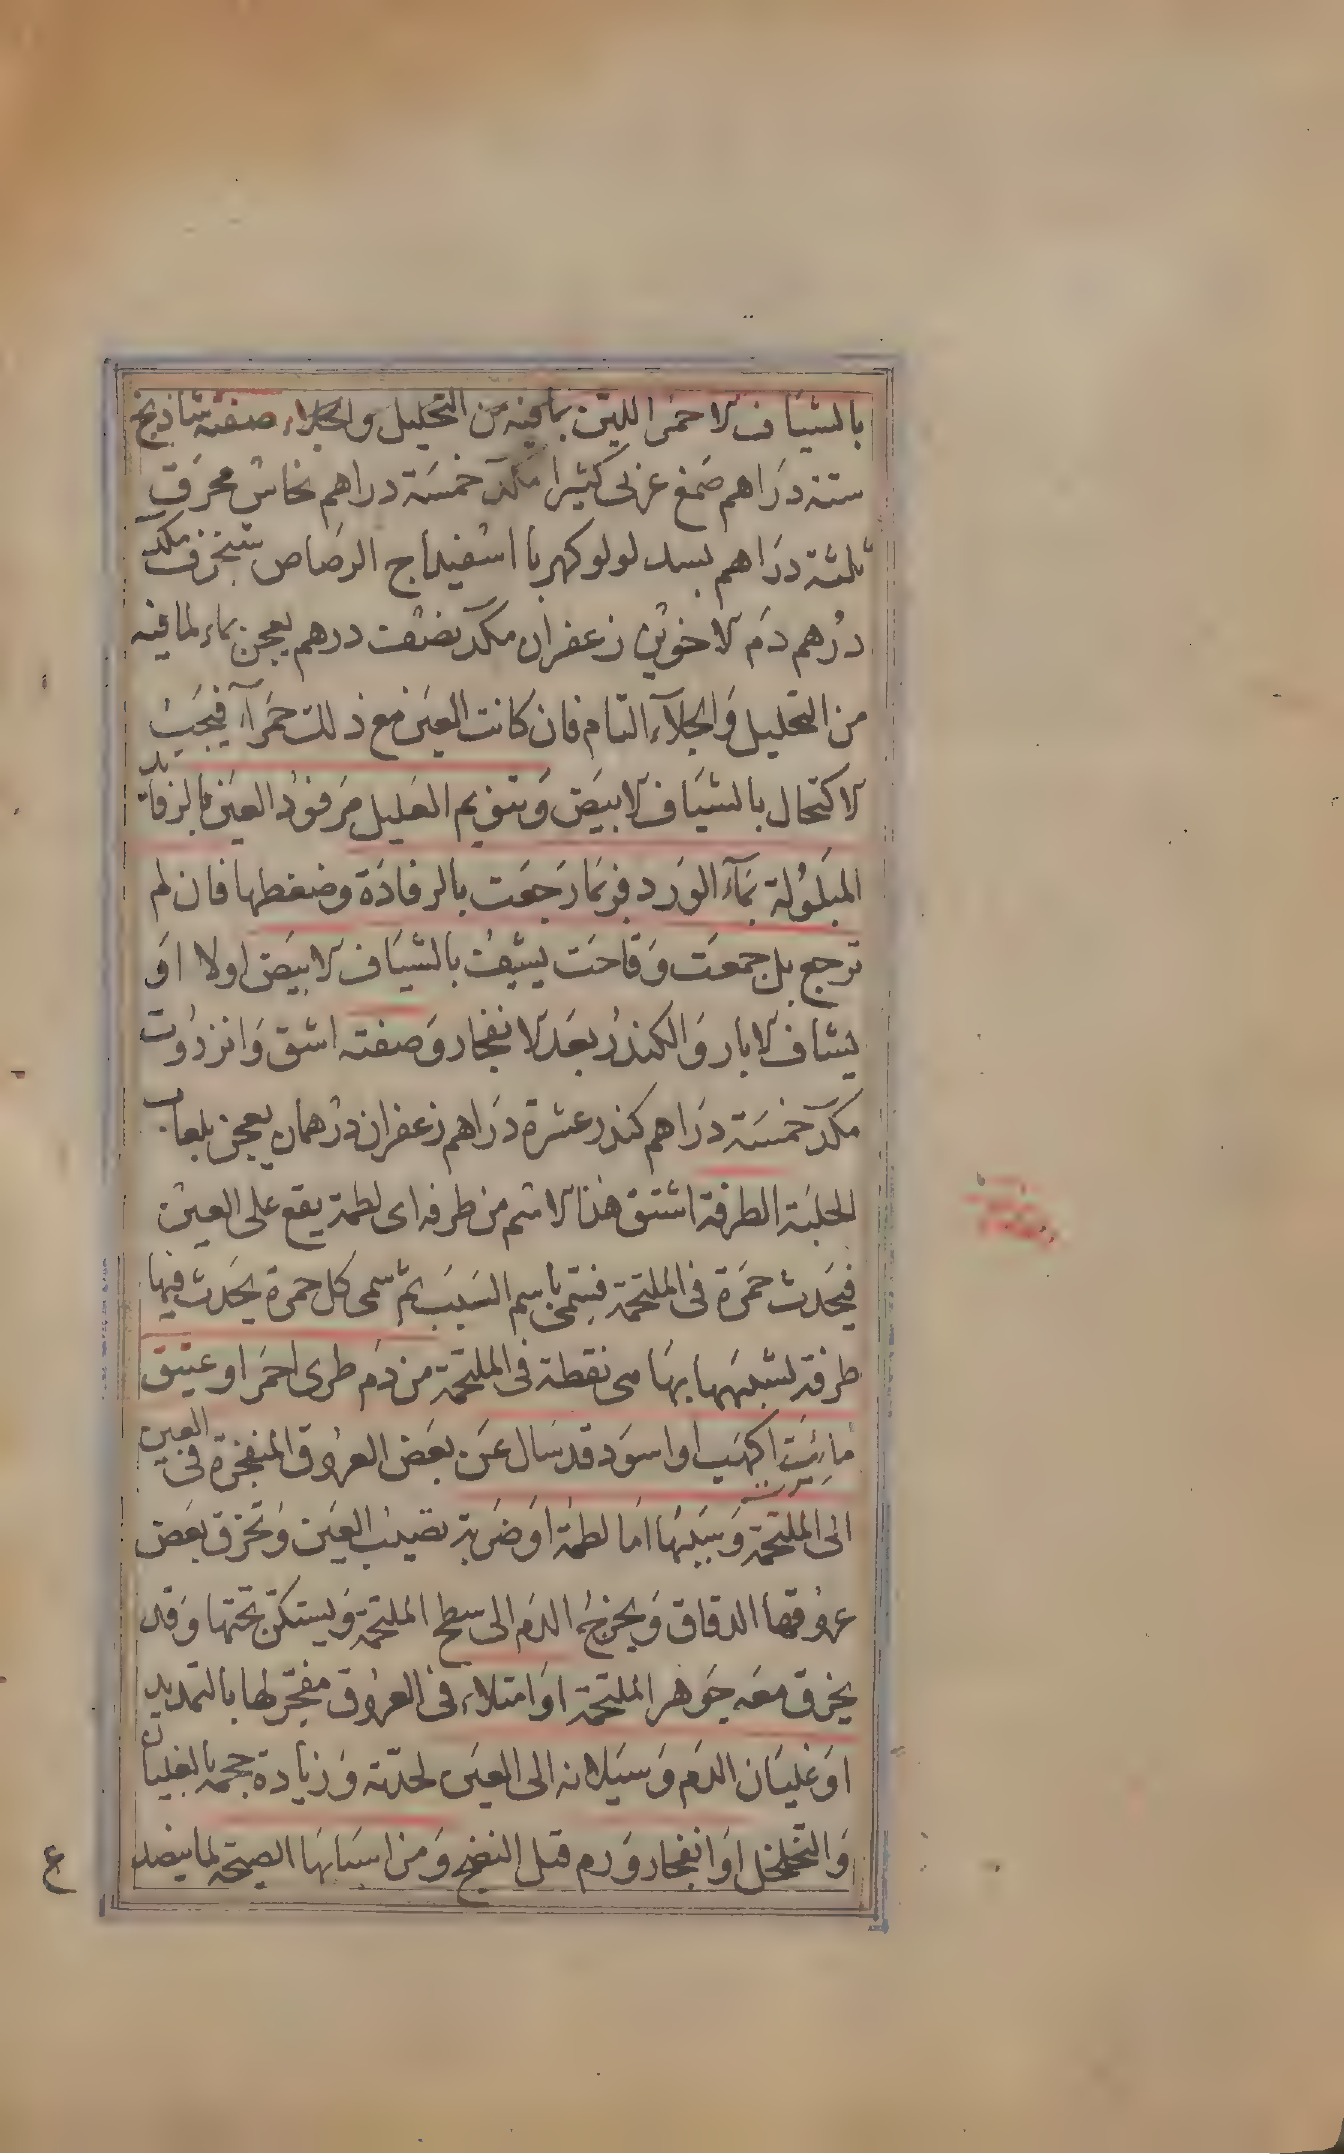 بالشياف الاحمر اللين بما فيه من التحليل والجلاء صفته شاذنج
ستة دراهم صمغ عربى كثيرا مكد خمسة دراهم نحاس محرق
ثلثة دراهم بسد لولو كهربا اسفيداج الرصاص شنجرف مكد
درهم دم الاخوين زعفران مكد نصف درهم يعجن بماء لما فيه
من التحليل والجلاء التام فان كانت العين مع ذلك حمراء فيجب
الاكتحال بالشياف الابيض وتنويم العليل مرفود العين بالرفائد
المبلولة بماء الورد فربما رجعت بالرفادة وضغطها فان لم
ترجع بل جمعت وقاحت يشيف بالشياف الابيض اولا او
بشاف الابار والكندر بعد الانفجار وصفته اشق وانزروت
مكد خمسة دراهم كندر عشرة دراهم زعفران درهمان يعجن بلعاب
الحلبة الطرفة اشتق هذا الاسم من طرفه اى لطمة يقع على العين
فيحدث حمرة فى الملتحمة فسمى باسم السبب ثم سمى كل حمرة يحدث فيها
طرفة لشبهها بها هى نقطة فى الملتحمة من دم طرى احمر او عتيق
مايت اكهب او اسود قد سال عن بعض العروق المنفجرة فى العين
الى الملتحمة وسببها اما لطمة او ضربة تصيب العين وتخرق بعض
عروقها الدقاق ويخرج الدم الى سطح الملتحمة ويستكن تحتها وقد
يخرق معه جوهر الملتحمة او امتلاء فى العروق مفجر لها بالتمديد
او غليان الدم وسيلانه الى العين لحدته وزيادة حجمه بالغليان
والتخلخل او انفجار ورم قبل النضج ومن اسبابها الصيحة لما ينضد
ع